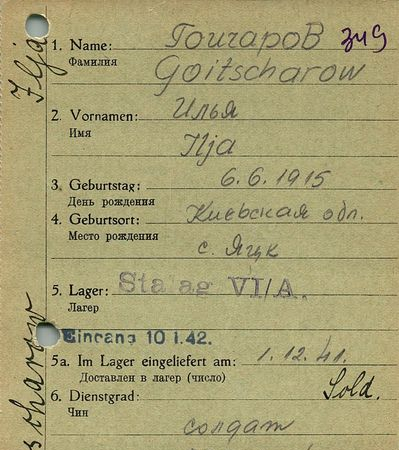 1. Name: Гончаров эид
Фамилия
Goitscharow
2. Vornamen: Илья
Имя
Ilja
3. Geburtstag: 6.6.1915
День рождения
4. Geburtsort: Киевская обл.
Место рождения
с. Яцк
5. Lager: Stalag VI/A.
Лагер
Eingang 10 1.42.
5a. Im Lager eingeliefert am: 1.12.41.
Доставлен в лагер (число)
6. Dienstgrad: Sold.
Чин
солдат
Ilja